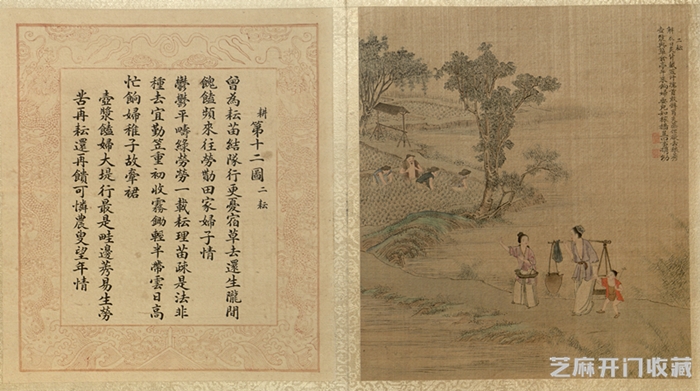 耕 第十二圖 二耘
曾為耘苗結隊行更憂宿草去還生隴間
餽饁頻來往勞勩田家婦子情
鬱鬱平疇綠勞勞一載耘理苗疎是法非
種去宜勤笠重初收霧鋤輕半帶雲日高
忙餉婦稚子故牽裙
壺漿饁婦大堤行最是畦邊莠易生勞
苦再耘還再饋可憐農叟望年情
二耘
芝麻开门收藏